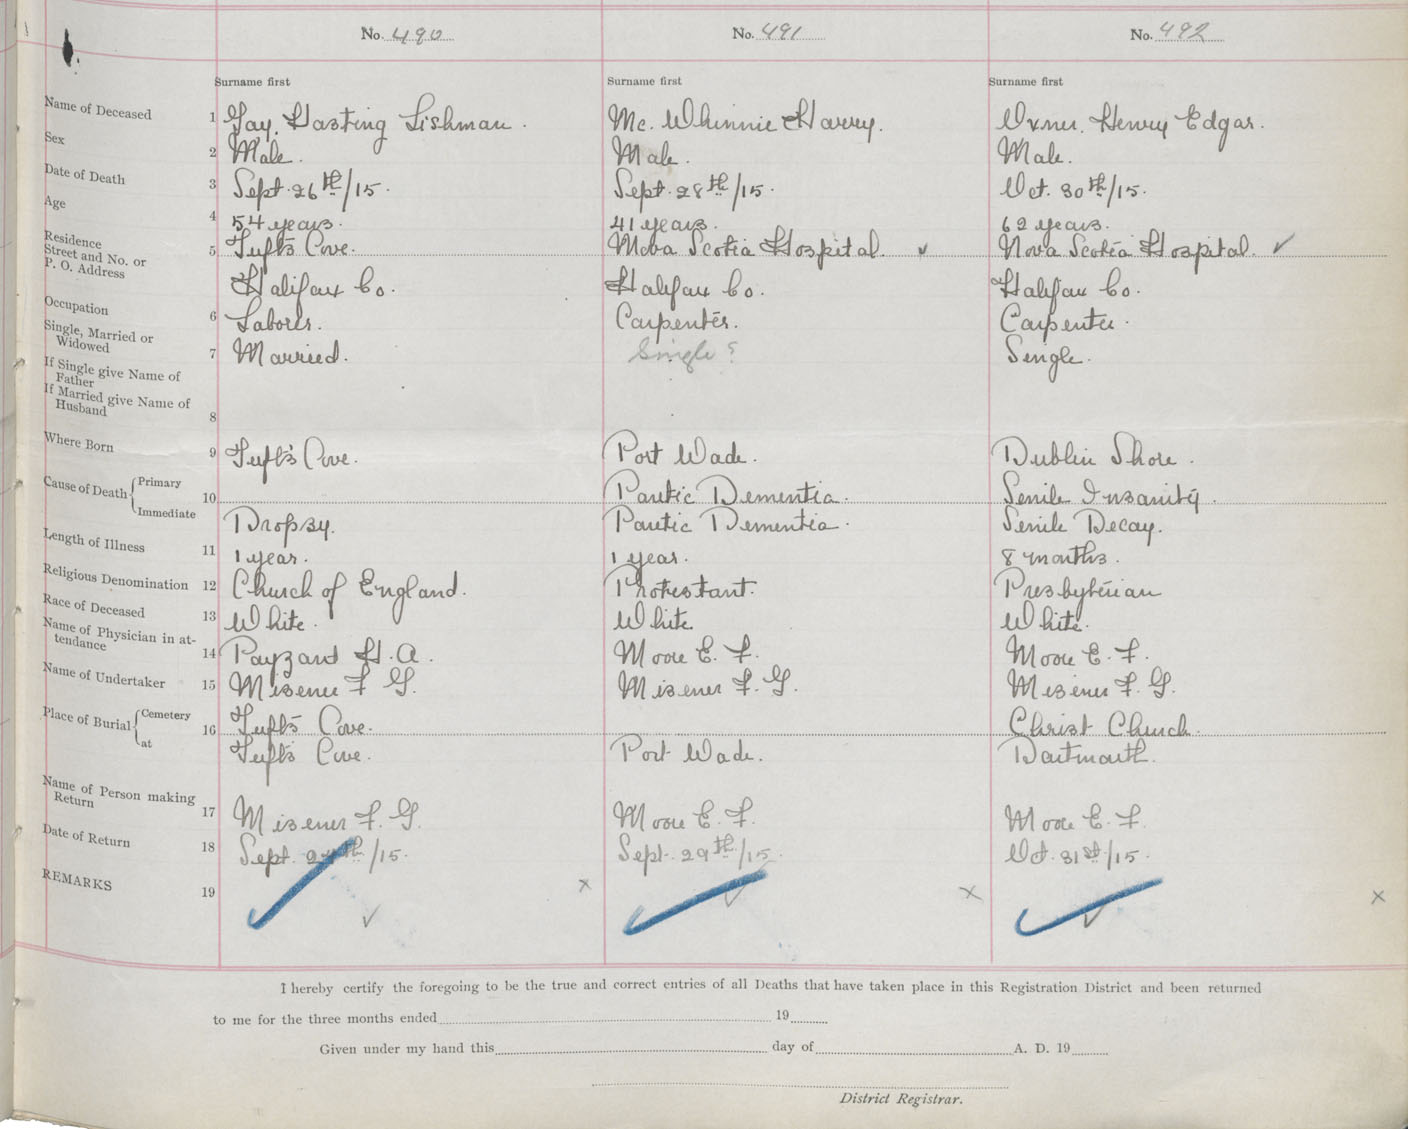 No. 490 No. 491 No. 492
Surname first Surname first Surname first
Name of Deceased 1 Gay, Hasting Lishman. Mc. Whinnie Harry. Oxner, Henry Edgar.
Sex 2 Male. Male. Male.
Date of Death 3 Sept. 26th/15. Sept. 28th/15. Oct. 30th/15.
Age 4 54 years. 41 years. 62 years.
Residence Street and No. or P. O. Address 5 Tufts Cove. Nova Scotia Hospital. ✓ Nova Scotia Hospital. ✓
Halifax Co. Halifax Co. Halifax Co.
Occupation 6 Laborer. Carpenter. Carpenter.
Single, Married or Widowed 7 Married. Single? Single.
If Single give Name of Father
If Married give Name of Husband 8
Where Born 9 Tuft's Cove. Port Wade. Dublin Shore.
Cause of Death Primary 10 Paretic Dementia. Senile Insanity.
Immediate Dropsy. Paretic Dementia. Senile Decay.
Length of Illness 11 1 year. 1 year. 8 months.
Religious Denomination 12 Church of England. Protestant. Presbyterian
Race of Deceased 13 White. White. White.
Name of Physician in attendance 14 Payzant H. A. Moore E. F. Moore E. F.
Name of Undertaker 15 Misener F. G. Misener F. G. Misener F. G.
Place of Burial Cemetery 16 Tufts Cove. Christ Church.
at Tuft's Cove. Port Wade. Dartmouth.
Name of Person making Return 17 Misener F. G. Moore E. F. Moore E. F.
Date of Return 18 Sept. /15. Sept. 29th/15. Oct. 31st/15.
REMARKS 19 ✓ x ✓ x ✓ x
I hereby certify the foregoing to be the true and correct entries of all Deaths that have taken place in this Registration District and been returned
to me for the three months ended 19
Given under my hand this day of A. D. 19
District Registrar.